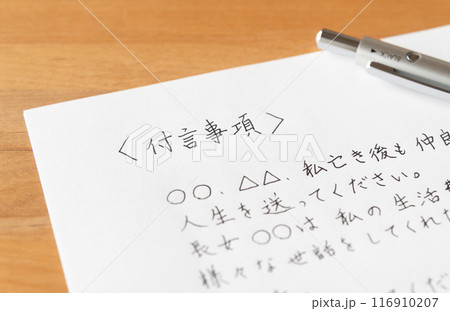 <付言事項>
○○、△△、私亡き後も仲良
人生を送ってください。
長女○○は私の生活
様々な世話をしてくれた
くだ
BLACK
116910207